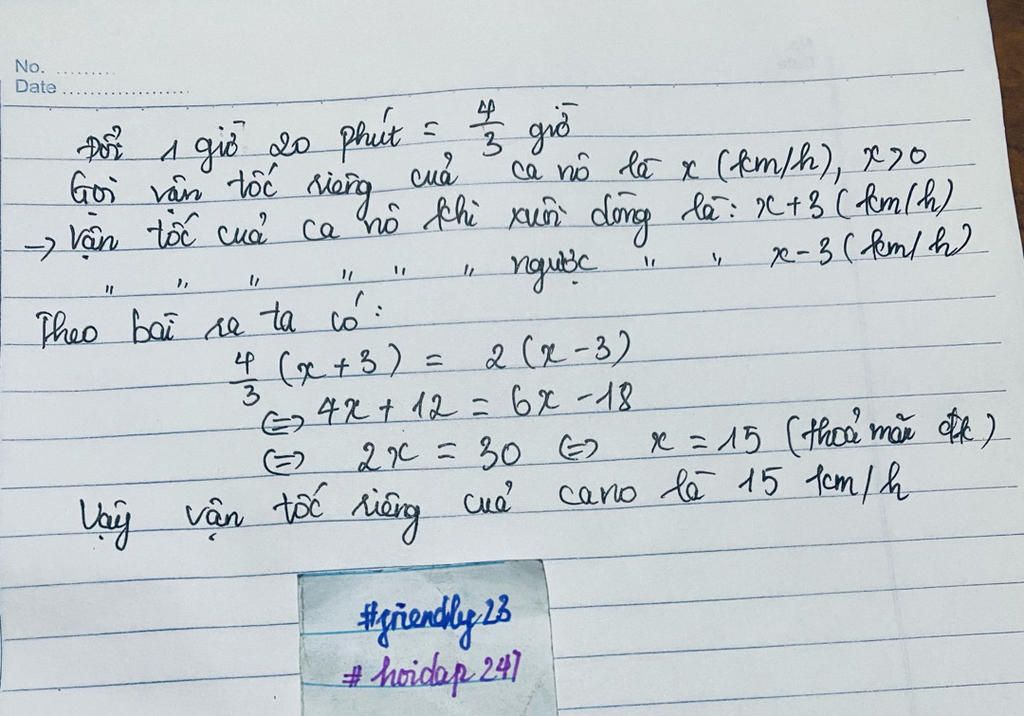 No. .........
Date ...................
Đổi 1 giờ 20 phút = 4/3 giờ
Gọi vận tốc riêng của ca nô là x (km/h), x>0
→ Vận tốc của ca nô khi xuôi dòng là: x+3 (km/h)
" " " " " ngược " " x-3 (km/h)
Theo bài ra ta có:
4/3 (x+3) = 2 (x-3)
⇔ 4x + 12 = 6x - 18
⇔ 2x = 30 ⇔ x = 15 (thoả mãn đk)
Vậy vận tốc riêng của cano là 15 km/h
#friendly23
# hoidap247